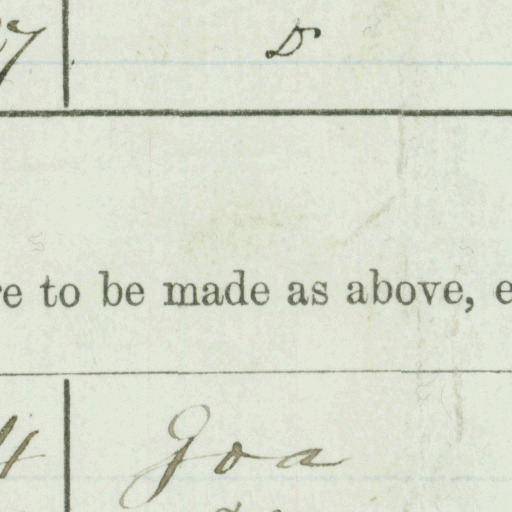 D
to be made as above,
Goa